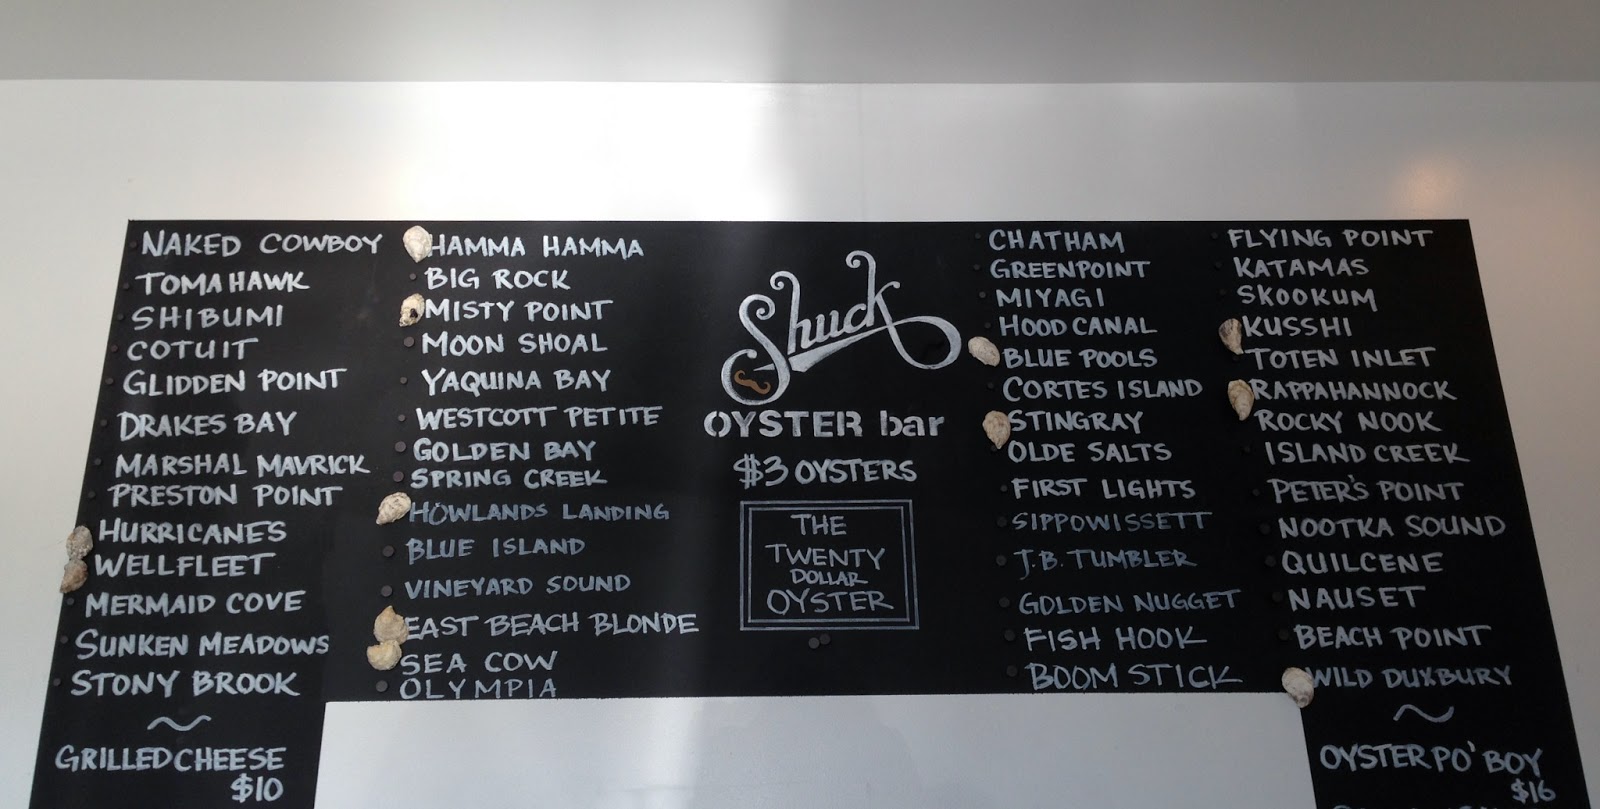 NAKED COWBOY
TOMAHAWK
SHIBUMI
COTUIT
GLIDDEN POINT
DRAKES BAY
MARSHAL MAVRICK
PRESTON POINT
HURRICANES
WELLFLEET
MERMAID COVE
SUNKEN MEADOWS
STONY BROOK
GRILLED CHEESE
$10
HAMMA HAMMA
BIG ROCK
MISTY POINT
MOON SHOAL
YAQUINA BAY
WESTCOTT PETITE
GOLDEN BAY
SPRING CREEK
HOWLANDS LANDING
BLUE ISLAND
VINEYARD SOUND
EAST BEACH BLONDE
SEA COW
OLYMPIA
Shuck
OYSTER bar
$3 OYSTERS
THE
TWENTY
DOLLAR
OYSTER
CHATHAM
GREENPOINT
MIYAGI
HOOD CANAL
BLUE POOLS
CORTES ISLAND
STINGRAY
OLDE SALTS
FIRST LIGHTS
SIPPOWISSETT
J.B. TUMBLER
GOLDEN NUGGET
FISH HOOK
BOOM STICK
FLYING POINT
KATAMAS
SKOOKUM
KUSSHI
TOTEN INLET
RAPPAHANNOCK
ROCKY NOOK
ISLAND CREEK
PETER'S POINT
NOOTKA SOUND
QUILCENE
NAUSET
BEACH POINT
WILD DUXBURY
OYSTER PO' BOY
$16